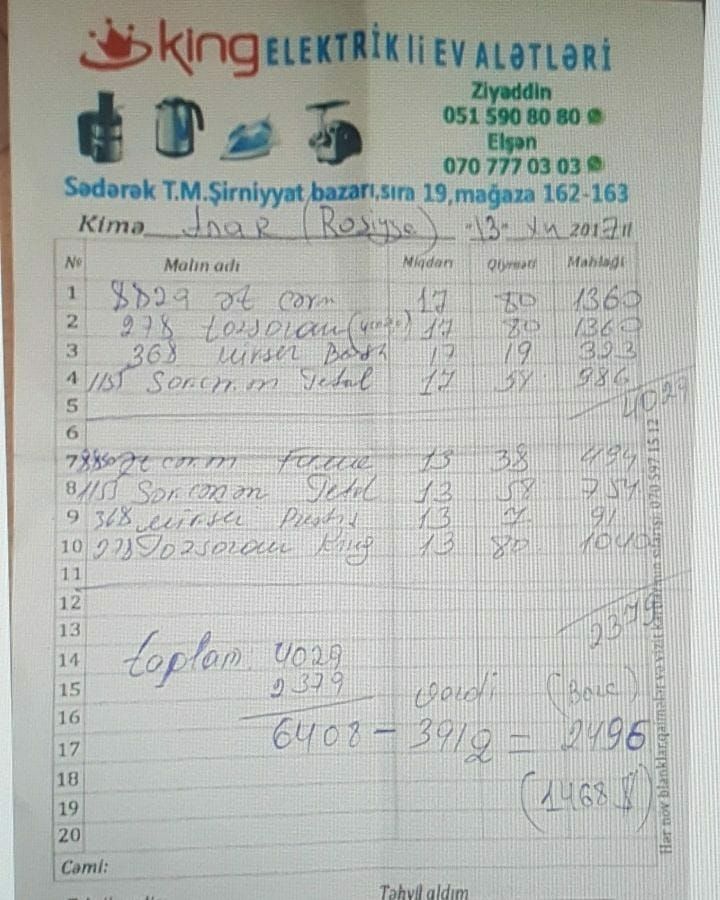 king ELEKTRİKli EV ALƏTLƏRİ
Ziyəddin
051 590 80 80
Elşən
070 777 03 03
Sədərək T.M.Şirniyyat bazarı,sıra 19,mağaza 162-163
Kimə İnar (Rosiyse) "13" 2017
№ Malın adı Miqdarı Qiyməti Məbləği
1 8829 ət 17 80 1360
2 278 tozsoran 17 80 1360
3 368 mirser 17 19 323
4 1155 Tefal 17 58 986
5 4029
6
7 8850 ət 13 38 494
8 1155 Tefal 13 58 754
9 368 mirser 13 7 91
10 278 Tozsoran King 13 80 1040
11
12
13 2379
14 toplam 4029
15 2379 verdi (Borc)
16
17 6408 - 3912 = 2496
18 (1468 $)
19
20
Cəmi:
Təhvil aldım
Hər növ blanklar,qaimələr və vizit kartlarının sifarişi: 070 597 15 12